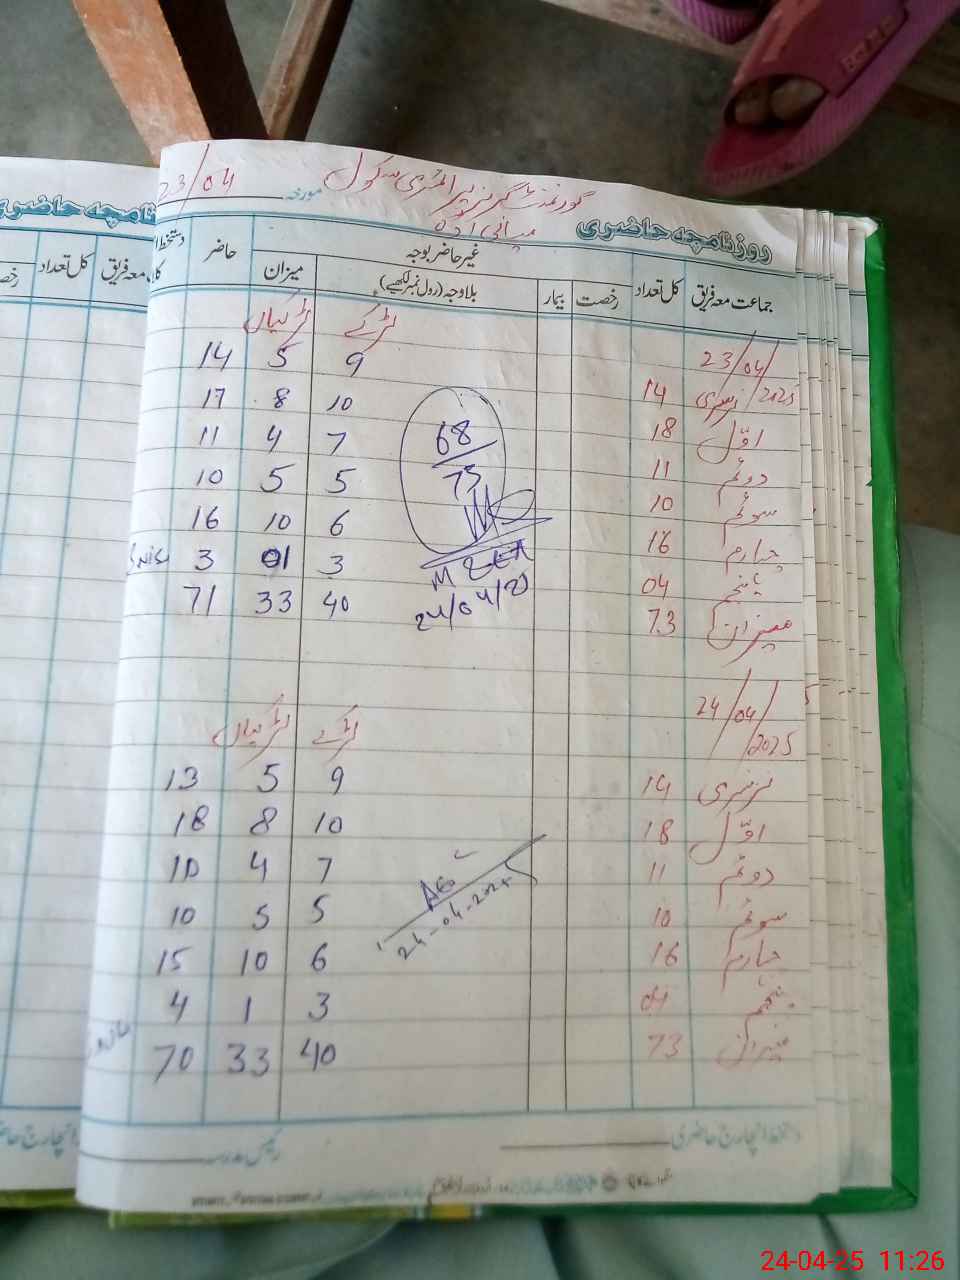 گورنمنٹ گرلز پرائمری سکول
23/04
مورخہ
روزنامچہ حاضری
جماعت معہ فریق کل تعداد رخصت بیمار غیر حاضر بوجہ حاضر
بلاوجہ (رول نمبر لکھیے) میزان
لڑکے لڑکیاں
23/04/2025
نرسری 14 9 5 14
اوّل 18 10 8 17
دوئم 11 7 4 11
سوئم 10 5 5 10
چہارم 16 6 10 16
پنجم 04 3 01 3
میزان 73 40 33 71
68
75
24/04/25
24/04/2025
لڑکے لڑکیاں
نرسری 14 9 5 13
اوّل 18 10 8 18
دوئم 11 7 4 10
سوئم 10 5 5 10
چہارم 16 6 10 15
پنجم 04 3 1 4
میزان 73 40 33 70
24-04-2025
دستخط انچارج حاضری
رئیس مدرسہ
روزنامچہ حاضری
معہ فریق کل تعداد
24-04-25 11:26